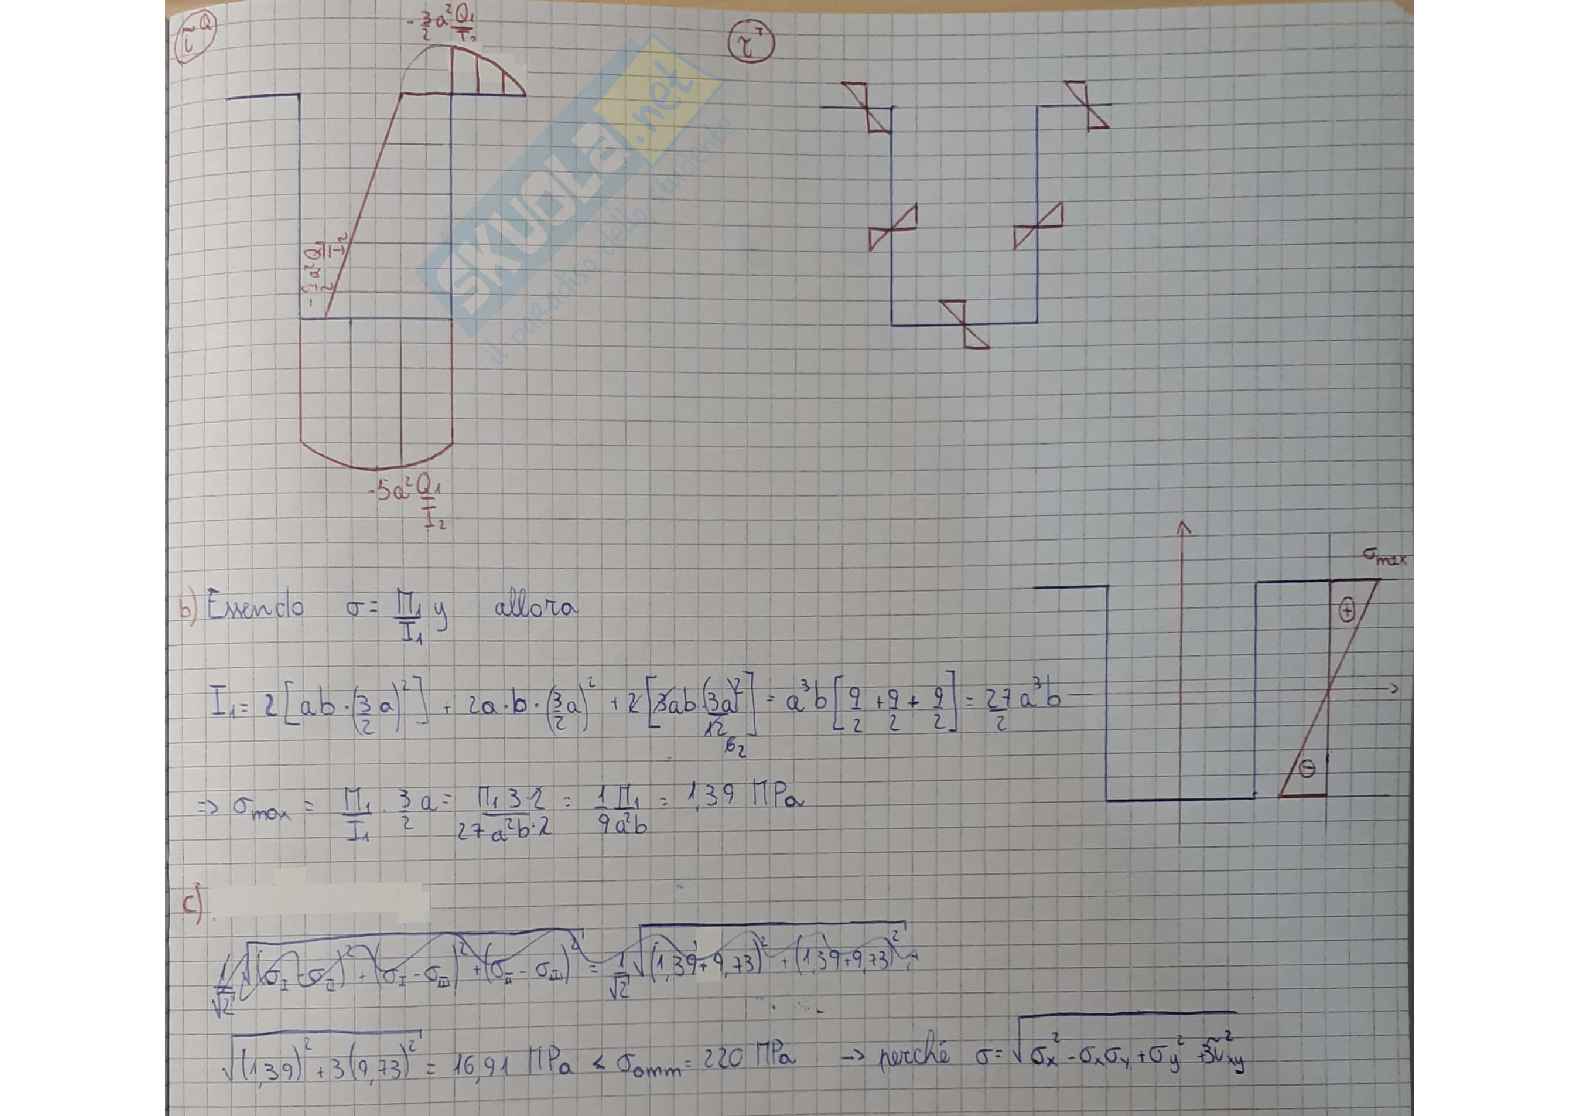 τ^Q
-3/2 a² Q₁/I₂
τ^T
-9/2 a² Q₁/I₂
SKUOLA.net
il paradiso dello studente
-5a² Q₁/I₂
σmax
b) Essendo σ = M₁/I₁ y allora
⊕
I₁ = 2[ab·(3/2 a)²] + 2a·b·(3/2 a)² + 2[3ab(3a)²/12] = a³b[9/2 + 9/2 + 9/2] = 27/2 a³b
⊖
⇒ σmax = M₁/I₁ · 3/2 a = M₁ 3·2/27a²b·2 = 1/9 M₁/a²b = 1,39 MPa
c)
1/√2 √(σI - σII)² + (σI - σIII)² + (σII - σIII)² = 1/√2 √(1,39+9,73)² + (1,39+9,73)² +
√(1,39)² + 3(9,73)² = 16,91 MPa < σamm = 220 MPa → perché σ = √σx² - σxσy + σy² + 3τxy²